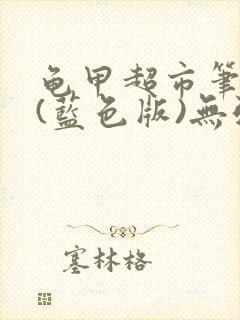 龟甲超市筆
(藍色版)無
塞林格